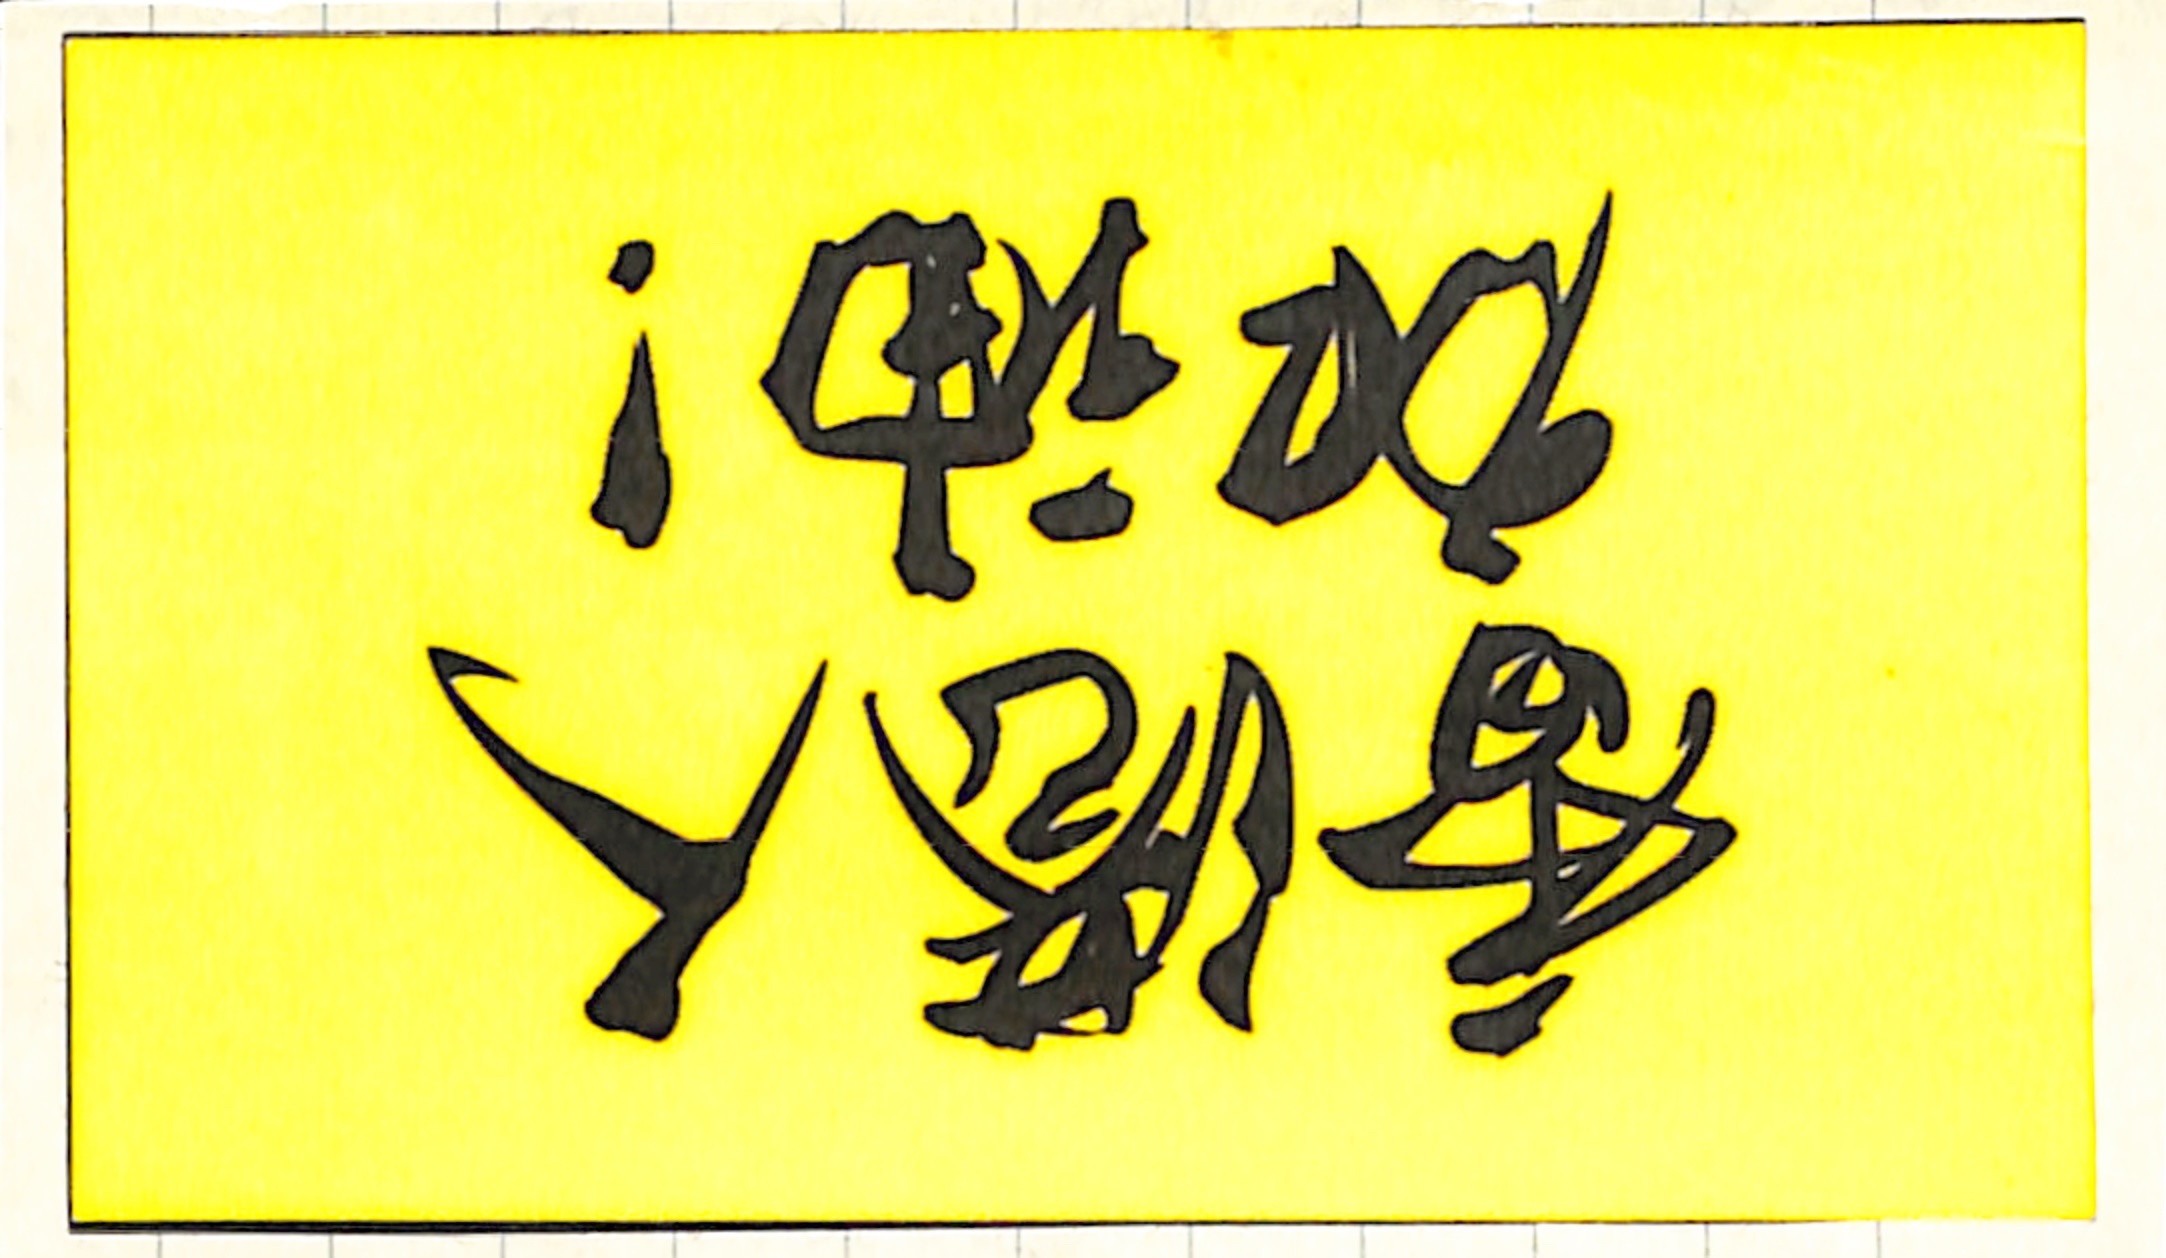 香港人
加油！